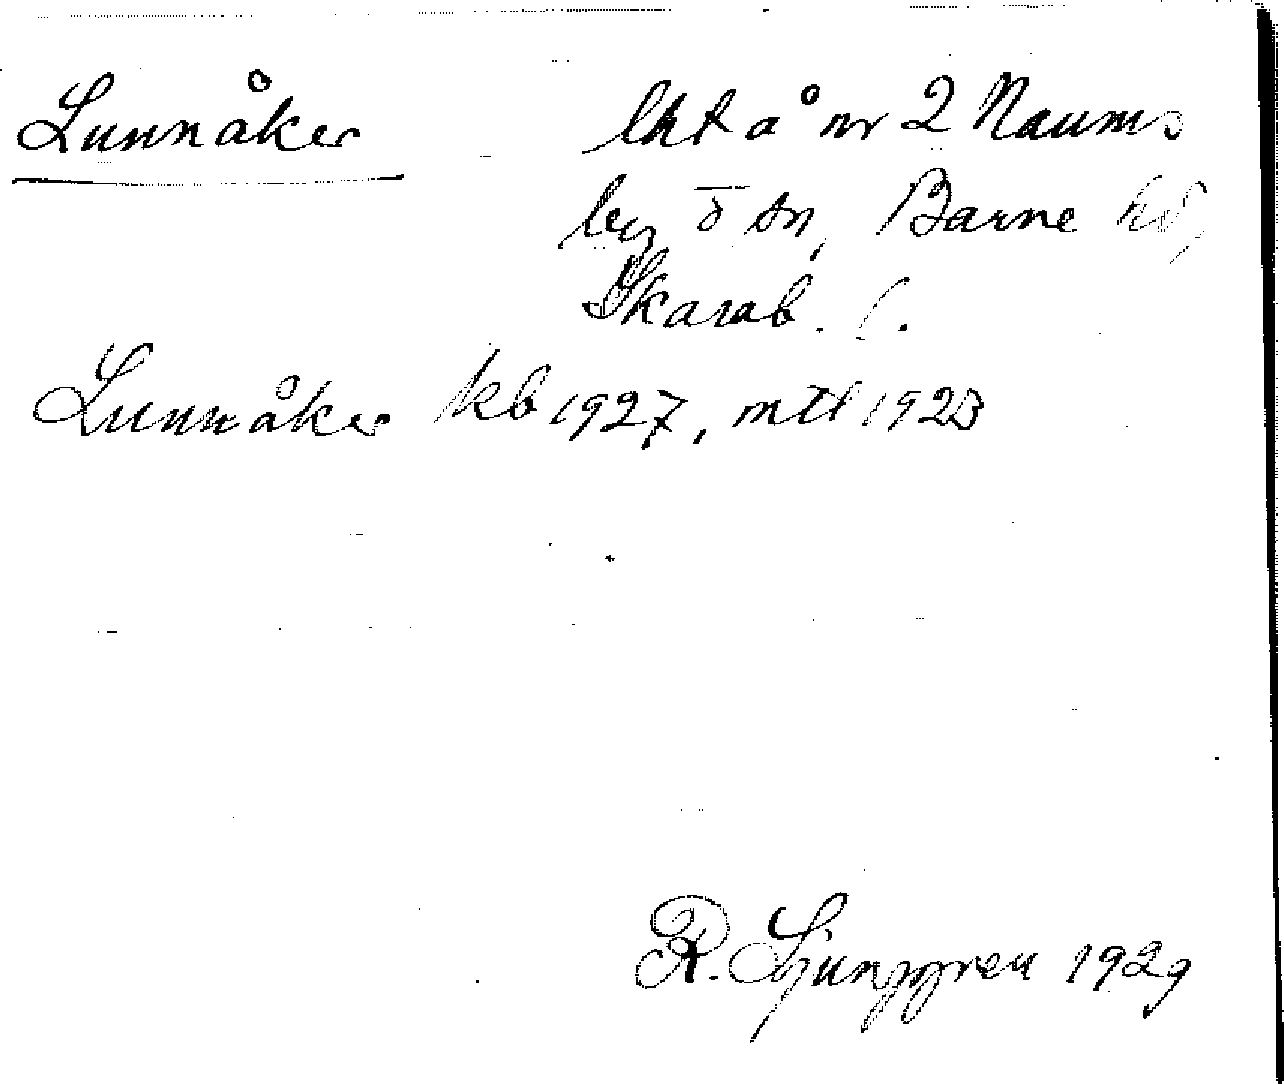 Lunnåker lht å nr 2 Naums
by o sn, Barne hd,
Skarab. l.
Lunnåker kb 1927, mtl 1923
R. Ljunggren 1929